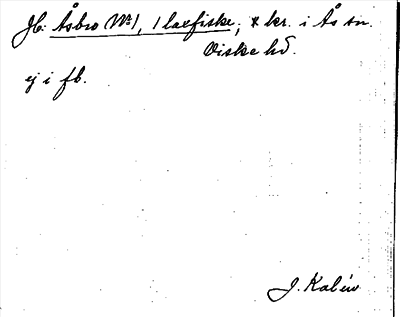 Jb: Åsbro No 1, 1 laxfiske, * kr. i Ås sn.
Viske hd.
ej i fb.
J. Kalén